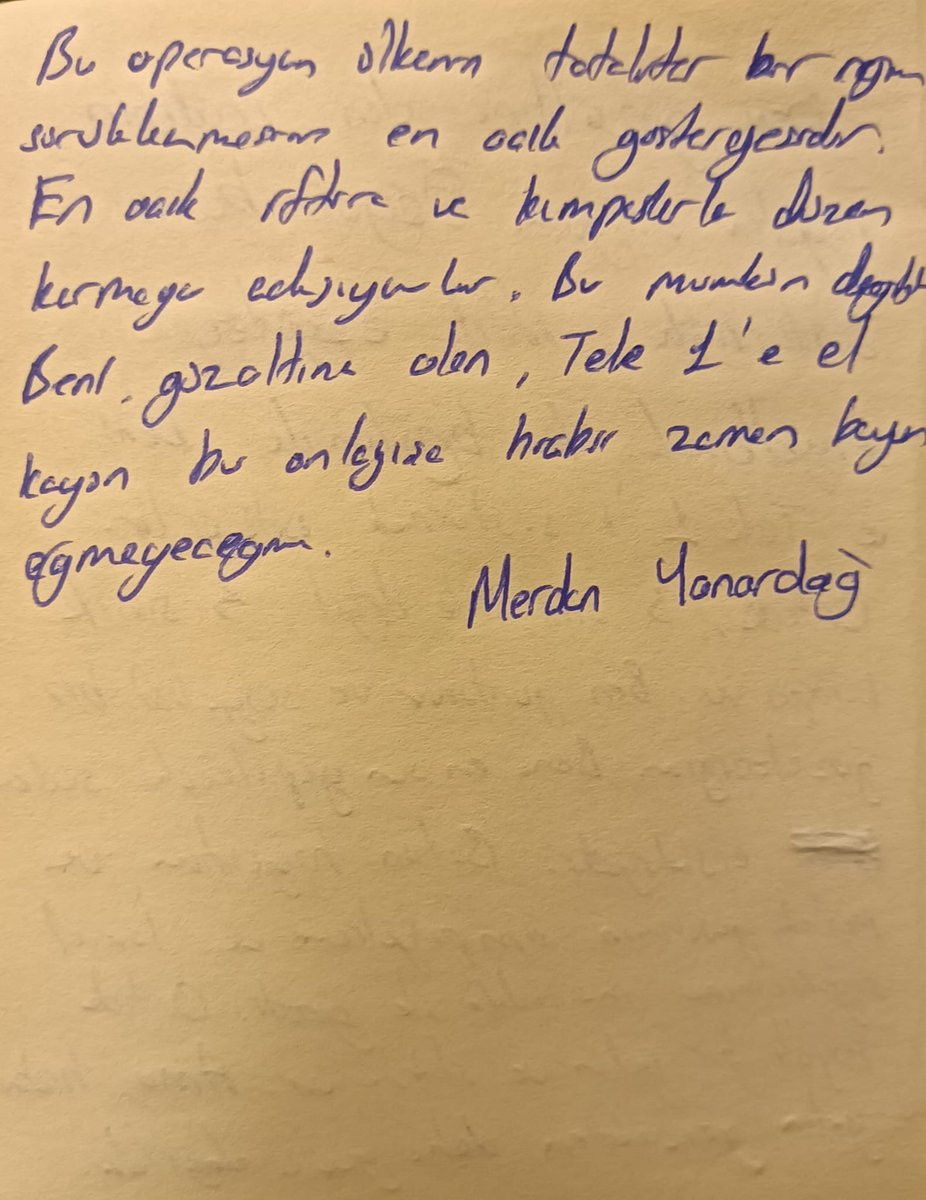 Bu operasyon ülkenin totaliter bir rejim
sürüklenmesinin en açık göstergesidir.
En açık iftira ve kumpaslarla düzen
kurmaya çalışıyorlar. Bu mümkün değildir
Beni gözaltına alan, Tele 1'e el
koyan bu anlayışa hiçbir zaman boyun
eğmeyeceğim.
Merdan Yanardağ